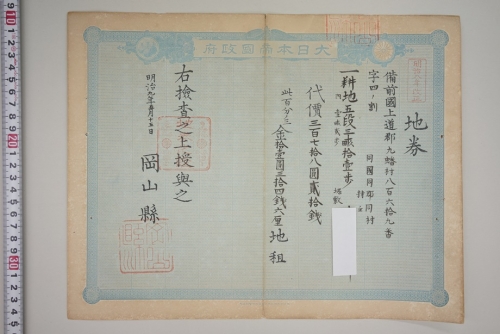 大日本帝國政府
地券
備前國上道郡九蟠村八百六拾九番
字四ノ割
同國同郡同村
持主
一耕地五段三畝拾壹歩
代價三百七拾八圓貳拾錢
此百分ノ三 金拾壹圓三拾四錢六厘 地租
右檢査之上授與之
明治九年
岡山縣